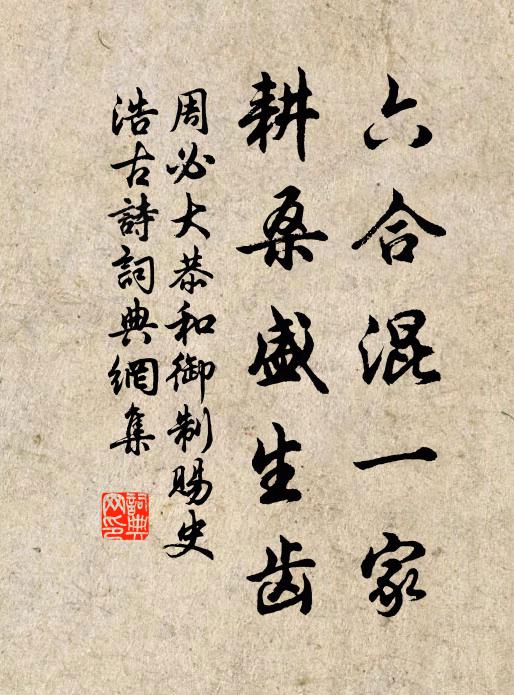 六合混一家
耕桑盛生齿
周必大恭和御制賜史
浩古詩詞典網集
詞典
网印